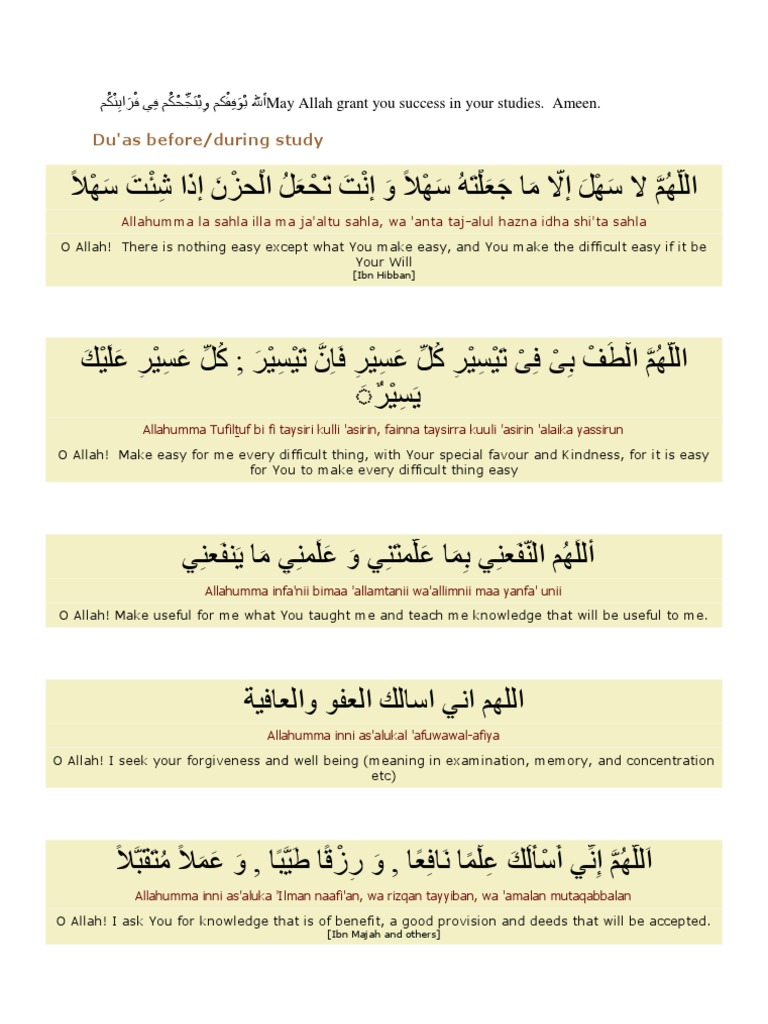 اَللهُ يُوَفِقْكم وِيْنَجِّحْكُم فِي قْرَايِتْكُمMay Allah grant you success in your studies.  Ameen.
Du'as before/during study
اللَّهُمَّ لا سَهْلَ إلّا مَا جَعَلْتَهُ سَهْلاً وَ إنْتَ تَحْعَلُ الْحزْنَ إذَا شِئْتَ سَهْلاً
Allahumma la sahla illa ma ja'altu sahla, wa 'anta taj-alul hazna idha shi'ta sahla
O Allah!  There is nothing easy except what You make easy, and You make the difficult easy if it be
Your Will
[Ibn Hibban]
اللَّهُمَّ الْطَفْ بِىْ فِىْ تَيْسِيْرِ كُلِّ عَسِيْرِ فَاِنَّ تَيْسِيْرَ ; كُلِّ عَسِيْرِ عَلَيْكَ
يَسِيْرٌَ
Allahumma Tufilṯuf bi fi taysiri kulli 'asirin, fainna taysirra kuuli 'asirin 'alaika yassirun
O Allah!  Make easy for me every difficult thing, with Your special favour and Kindness, for it is easy
for You to make every difficult thing easy
أللَّهُم النْفَعنِي بِمَا عَلَّمتَنِي وَ عَلِّمنِي مَا يَنفَعنِي
Allahumma infa'nii bimaa 'allamtanii wa'allimnii maa yanfa' unii
O Allah! Make useful for me what You taught me and teach me knowledge that will be useful to me.
اللهم اني اسالك العفو والعافية
Allahumma inni as'alukal 'afuwawal-afiya
O Allah! I seek your forgiveness and well being (meaning in examination, memory, and concentration
etc)
اَللَّهُمَّ إِنِّي أَسْأَلُكَ عِلْمًا نَافِعًا , وَ رِزْقًا طَيَّبًا , وَ عَمَلاً مُتَقَبَّلاً
Allahumma inni as'aluka 'Ilman naafi'an, wa rizqan tayyiban, wa 'amalan mutaqabbalan
O Allah! I ask You for knowledge that is of benefit, a good provision and deeds that will be accepted.
[Ibn Majah and others]